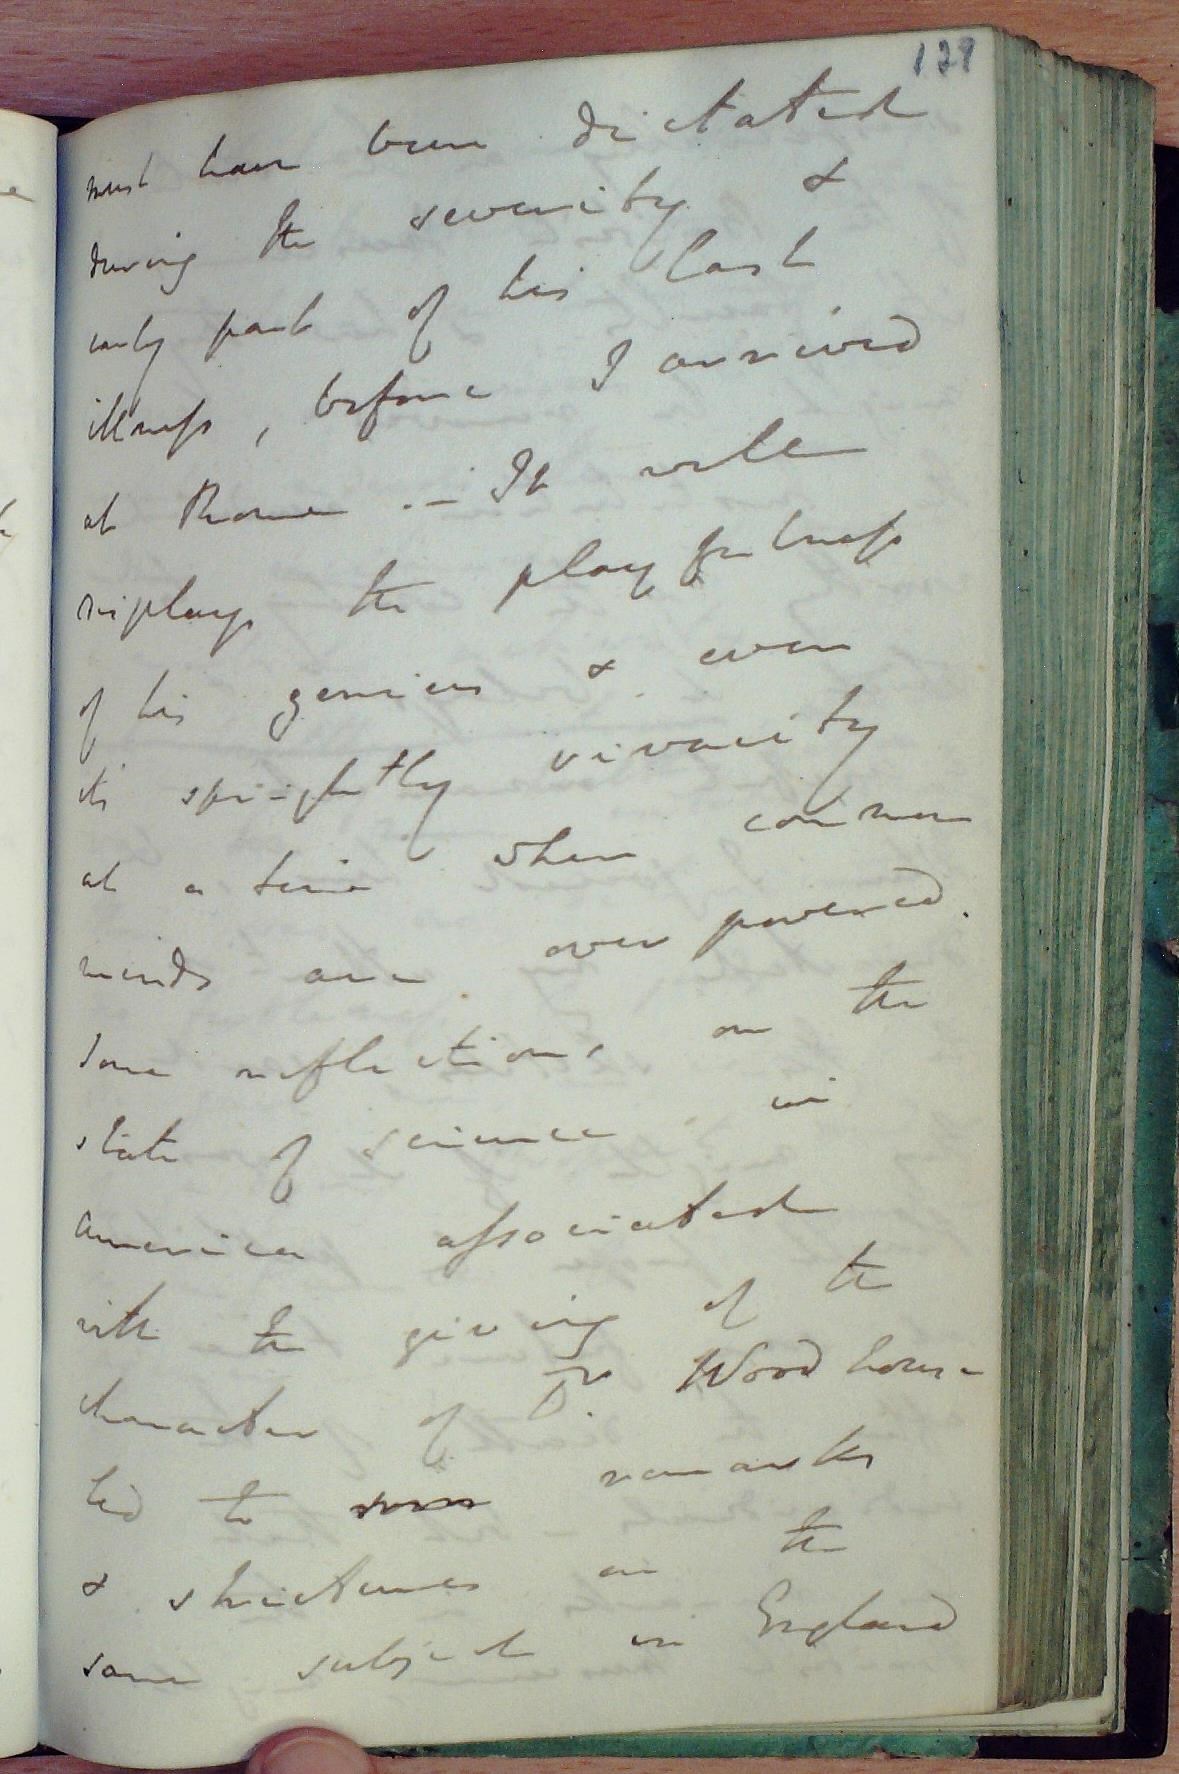 129
must have been dictated
during the severity &
early part of his last
illness, before I arrived
at Rome. — It well
displays the playfulness
of his genius & even
its sprightly vivacity
at a time when common
minds are over powered.
Some reflections on the
state of science in
America associated
with the giving of the
character of Dr. Woodhouse
led to some remarks
& strictures on the
same subject in England